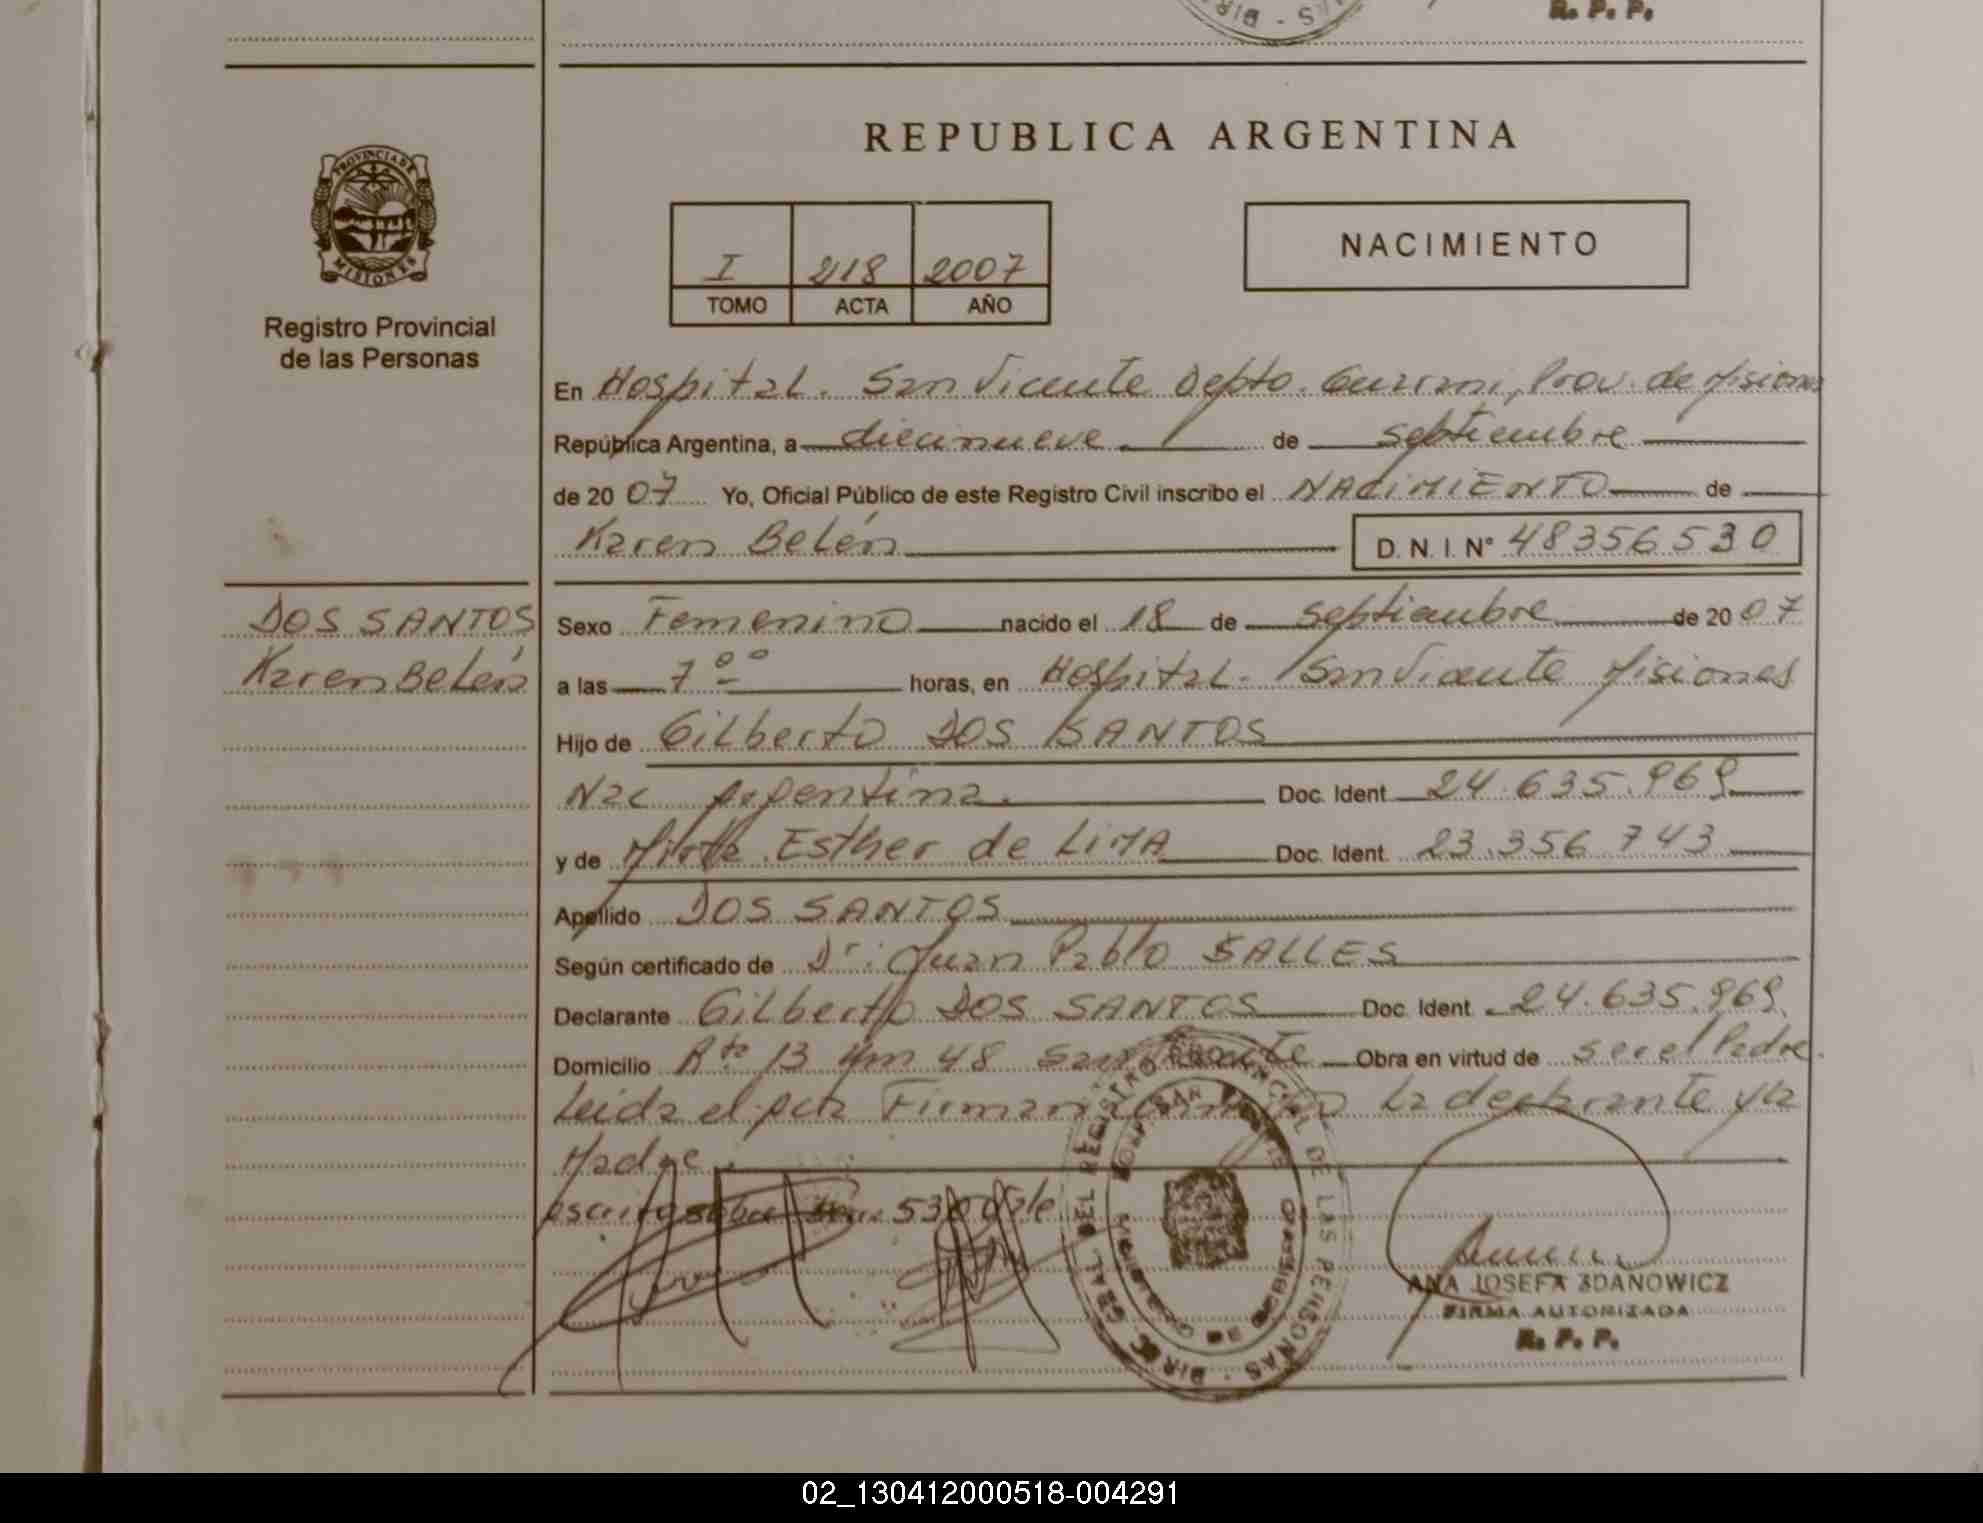 R. P. P.
PROVINCIA DE
MISIONES
Registro Provincial
de las Personas
DOS SANTOS
Karen Belén
REPUBLICA ARGENTINA
I 218 2007
TOMO ACTA AÑO
NACIMIENTO
En Hospital. San Vicente Depto. Guarani, Prov. de Misiones
República Argentina, a diecinueve de septiembre
de 20 07 Yo, Oficial Público de este Registro Civil inscribo el NACIMIENTO de
Karen Belén D. N. I. N° 48356530
Sexo Femenino nacido el 18 de septiembre de 20 07
a las 7 oo horas, en Hospital. San Vicente Misiones
Hijo de Gilberto DOS SANTOS
Nac Argentina. Doc. Ident. 24.635.969
y de Mirta Esther de LIMA Doc. Ident. 23.356.743
Apellido DOS SANTOS
Según certificado de Dr: Juan Pablo SALLES
Declarante Gilberto DOS SANTOS Doc. Ident. 24.635.969.
Domicilio Rta 13 Km 48 San Vicente Obra en virtud de ser el Padre.
Leida el acta Firman La declarante y la
Madre.
escrito sobre 530 Vale
DIREC. GRAL. DEL REGISTRO PROVINCIAL DE LAS PERSONAS
SAN VICENTE
MINISTERIO DE GOBIERNO
ANA JOSEFA ZDANOWICZ
FIRMA AUTORIZADA
R. P. P.
02_130412000518-004291